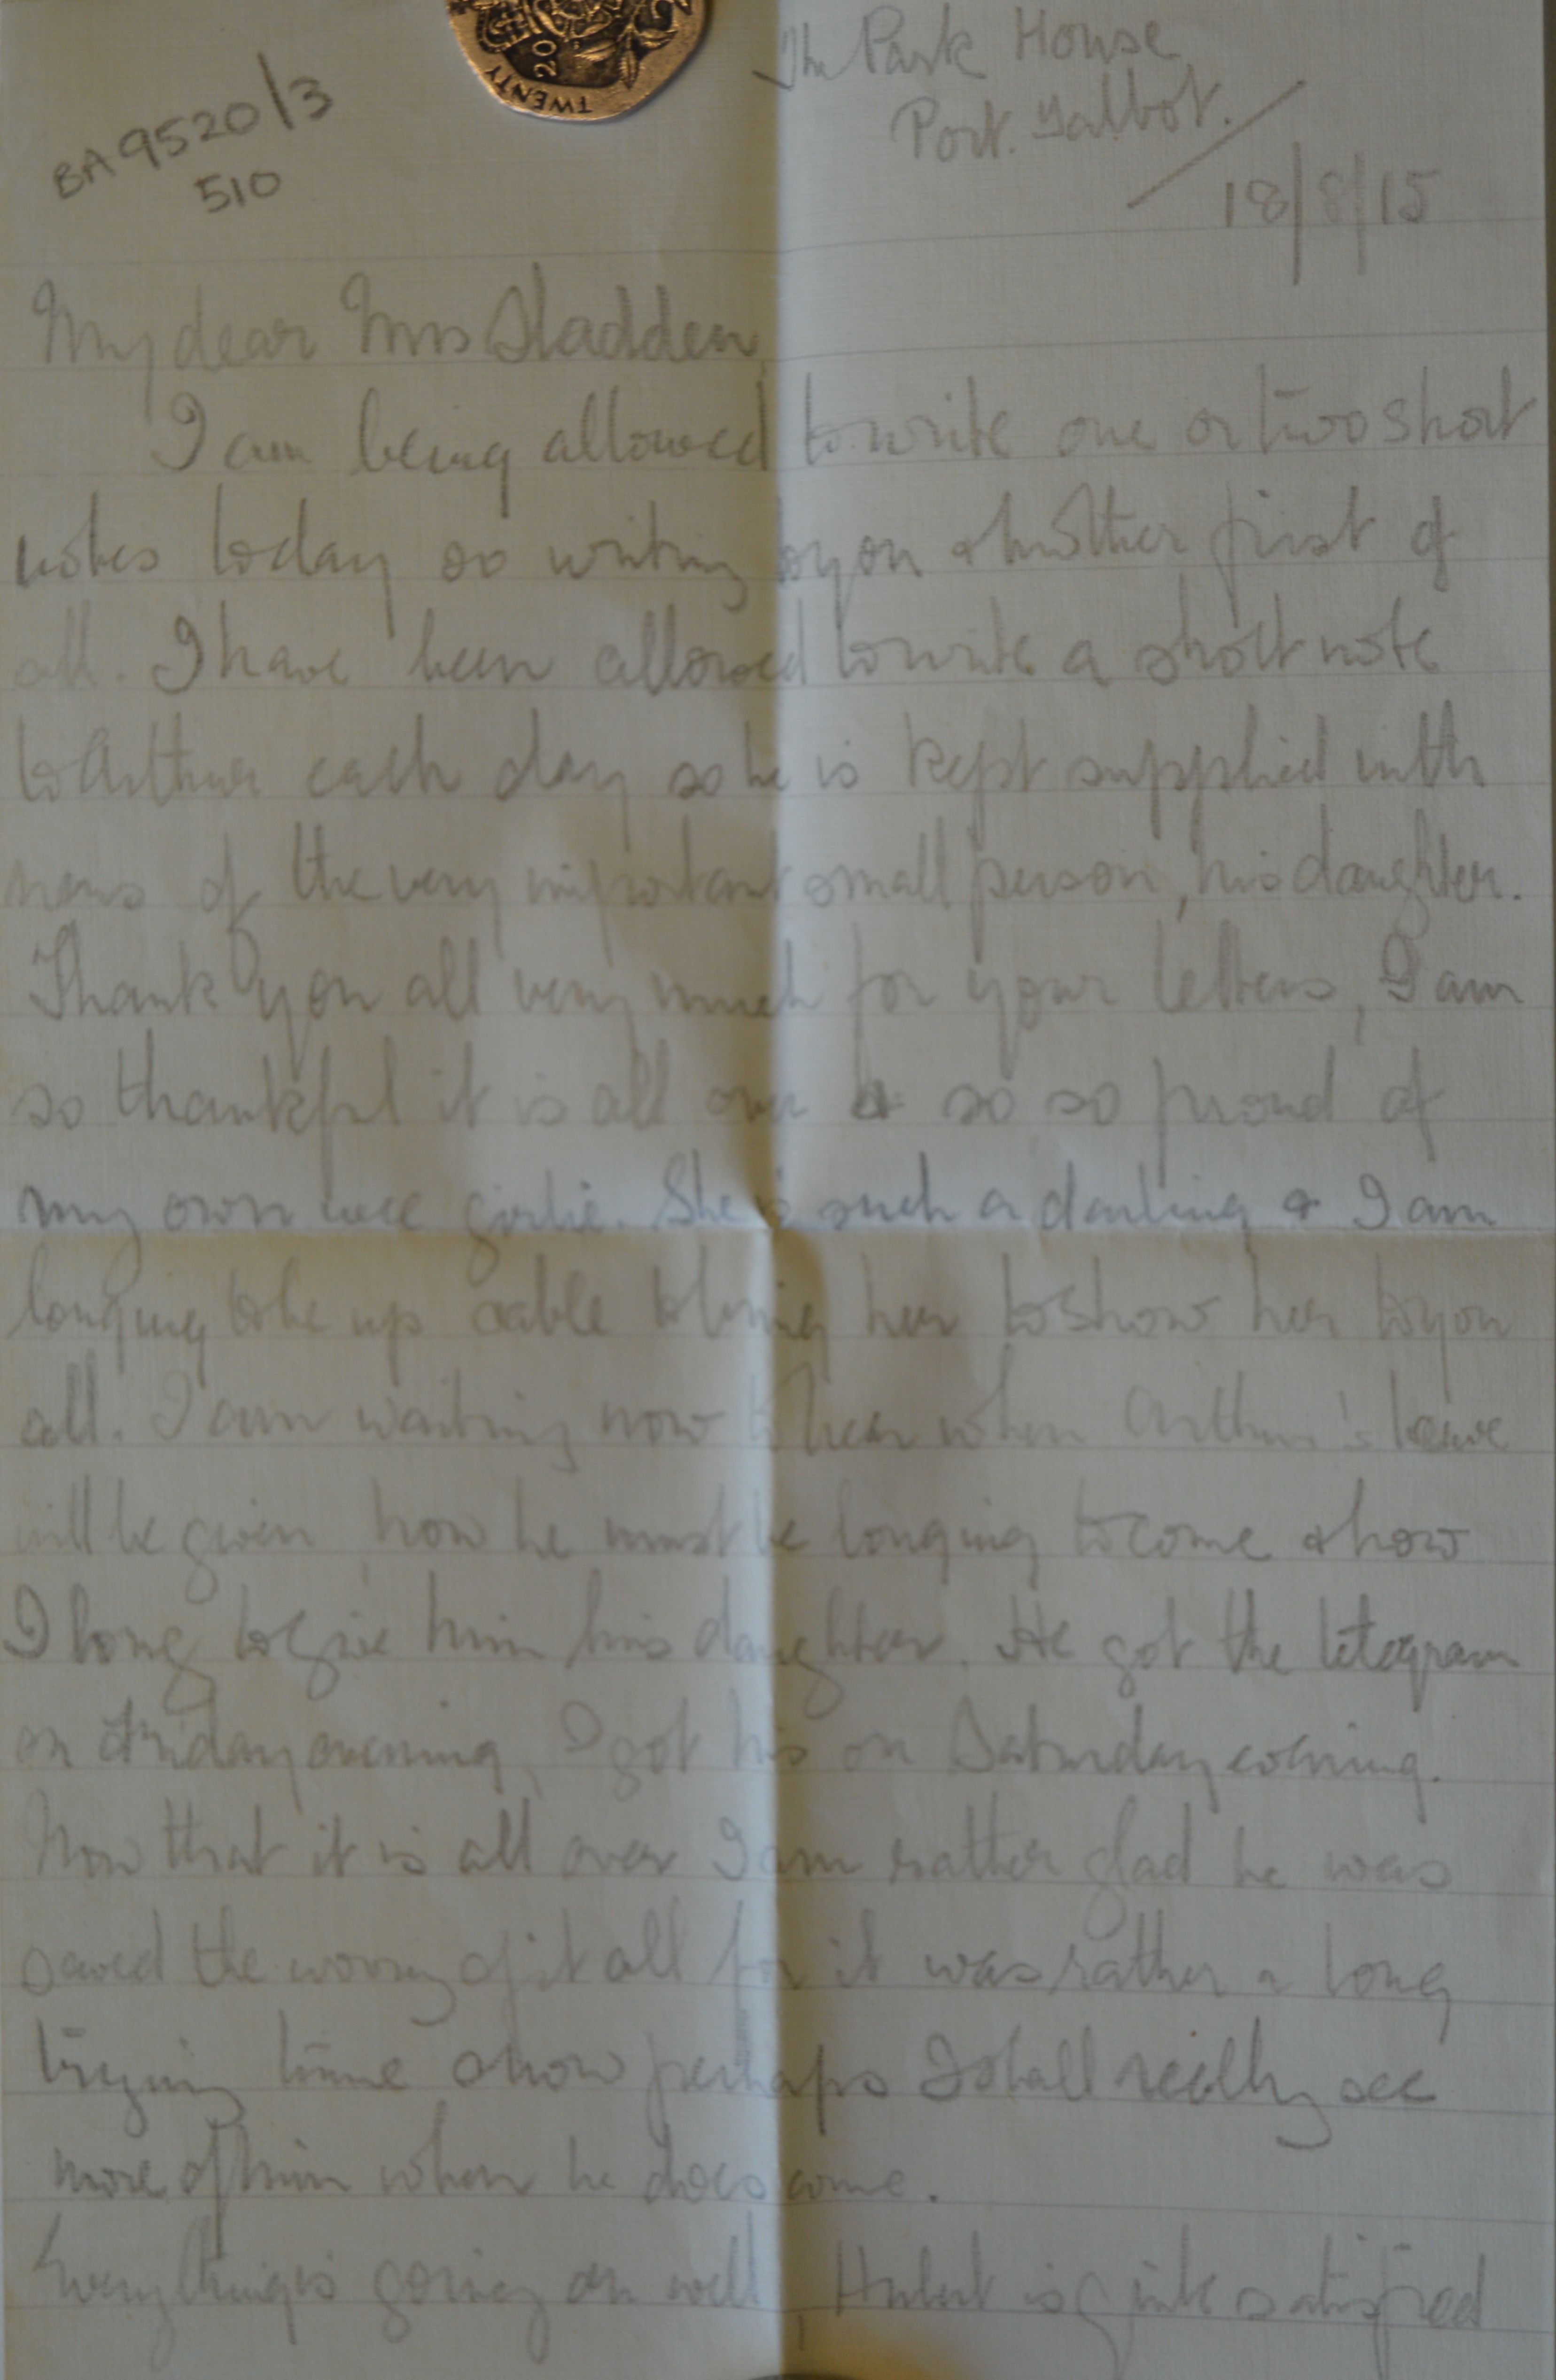 TWENTY
20
BA 9520/3
510
The Park House
Port Talbot.
18/8/15
My dear Mrs Sladden,
I am being allowed to write one or two short
notes today so writing to you & Mother first of
all. I have been allowed to write a short note
to Arthur each day so he is kept supplied with
news of the very important small person, his daughter.
Thank you all very much for your letters, I am
so thankful it is all over & so so proud of
my own wee girlie. She is such a darling & I am
longing to be up & able to bring her to show her to you
all. I am waiting now to hear when Arthur's leave
will be given, how he must be longing to come & how
I long to give him his daughter. He got the telegram
on Friday evening, I got his on Saturday evening.
Now that it is all over I am rather glad he was
saved the worry of it all for it was rather a long
trying time & now perhaps I shall really see
more of him when he does come.
Everything is going on well, Hubert is quite satisfied